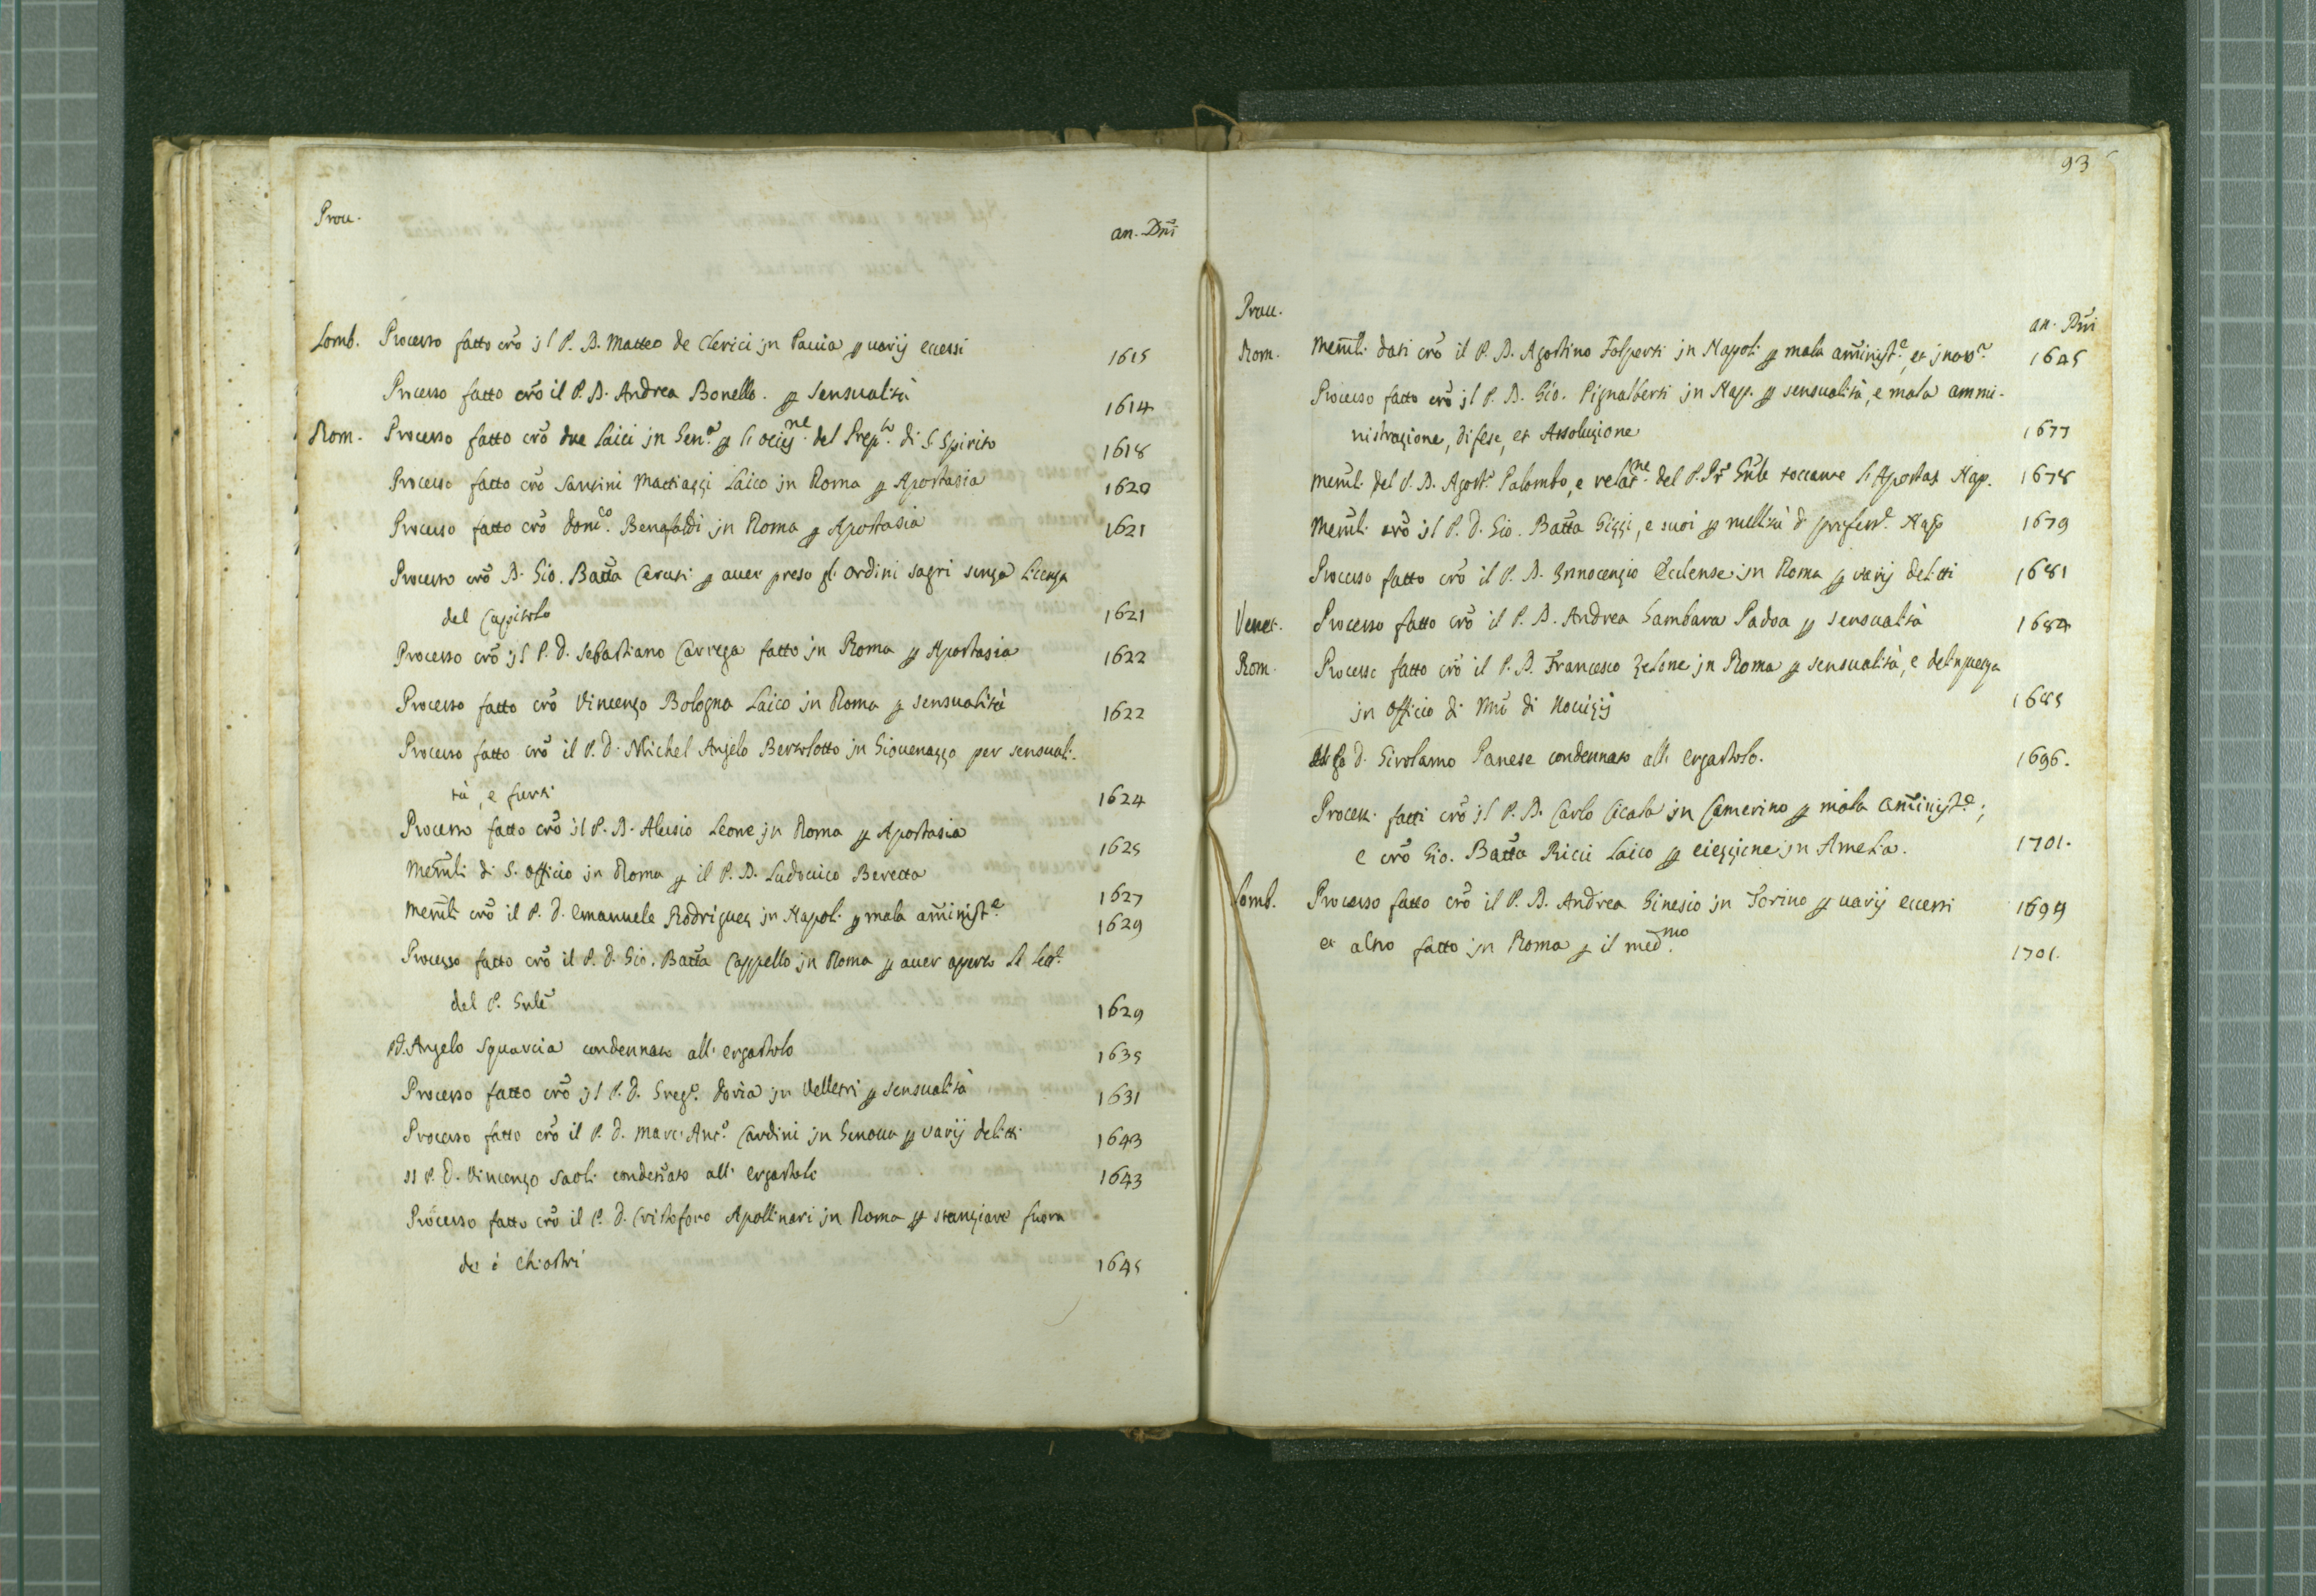 Prou.
an. Dñi
Lomb. Processo fatto crõ jl P. D. Matteo de Clerici jn Pauia p uarij eccessi 1615
Processo fatto crõ il P. D. Andrea Bonello. p sensualità 1614
Rom. Processo fatto crõ due Laici jn Gen.ª p l'ocis.ne del Prep.to di S. Spirito 1618
Processo fatto crõ Sansini Mattiazzi Laico jn Roma p Apostasia 1620
Processo fatto crõ Dom.co Benafaldi jn Roma p Apostasia 1621
Processo crõ D. Gio. Batta Cerusi p auer preso gl. ordini sagri senza licenza
del Capitolo 1621
Processo crõ jl P. D. Sebastiano Carrega fatto jn Roma p Apostasia 1622
Processo fatto crõ Vincenzo Bologna Laico jn Roma p sensualità 1622
Processo fatto crõ il P. D. Michel Angelo Bertolotto jn Giouenazzo per sensuali-
tà, e furti 1624
Processo fatto crõ jl P. D. Aluisio Leone jn Roma p Apostasia 1625
Memli di S. Officio jn Roma p il P. D. Ludouico Beretta 1627
Memli crõ il P. D. Emanuele Rodriguez jn Napoli p mala aminist.e 1629
Processo fatto crõ il P. D. Gio. Batta Cappello jn Roma p auer aperto le let.e
del P. Gnle 1629
P. D. Angelo Squarcia condennato all' ergastolo 1635
Processo fatto crõ jl P. D. Greg.o Doria jn Velletri p sensualità 1631
Processo fatto crõ il P. D. Marc' Ant.o Cardini jn Genoua p varij delitti 1643
Il P. D. Vincenzo Saoli condenato all' ergastolo 1643
Processo fatto crõ il P. D. Cristoforo Apollinari jn Roma p stanziare fuora
de i chiostri 1645
93
Prou.
an. Dñi
Rom. Memli dati crõ il P. D. Agostino Folperti jn Napoli p mala aminist.e, et 1645
Processo fatto crõ jl P. D. Gio. Pignalberti jn Nap. p sensualità, e mala ammi-
nistrazione, difese, et Assoluzione 1677
Memli del P. D. Agost.o Palombo, e relat.ne del P. Pr Gnle toccante l'Apostas Nap. 1678
Memli crõ jl P. D. Gio. Batta Gizzi, e suoi p nullità d professe Nap 1679
Processo fatto crõ il P. D. Innocenzio Ecclense jn Roma p varij delitti 1681
Venet. Processo fatto crõ il P. D. Andrea Gambara Padoa p sensualità 1684
Rom. Processo fatto crõ il P. D. Francesco Zelone jn Roma p sensualità, e delinquenza
jn officio di Mro di Nouizij 1685
D. Girolamo Panese condennato all' ergastolo. 1696.
Process. fatti crõ jl P. D. Carlo Cicala jn Camerino p mala aminist.e;
e crõ Gio. Batta Ricci Laico p eiezzione jn Amelia. 1701.
Lomb. Processo fatto crõ il P. D. Andrea Ginesio jn Torino p uarij eccessi 1694
et altro fatto jn Roma p il med.mo 1701.